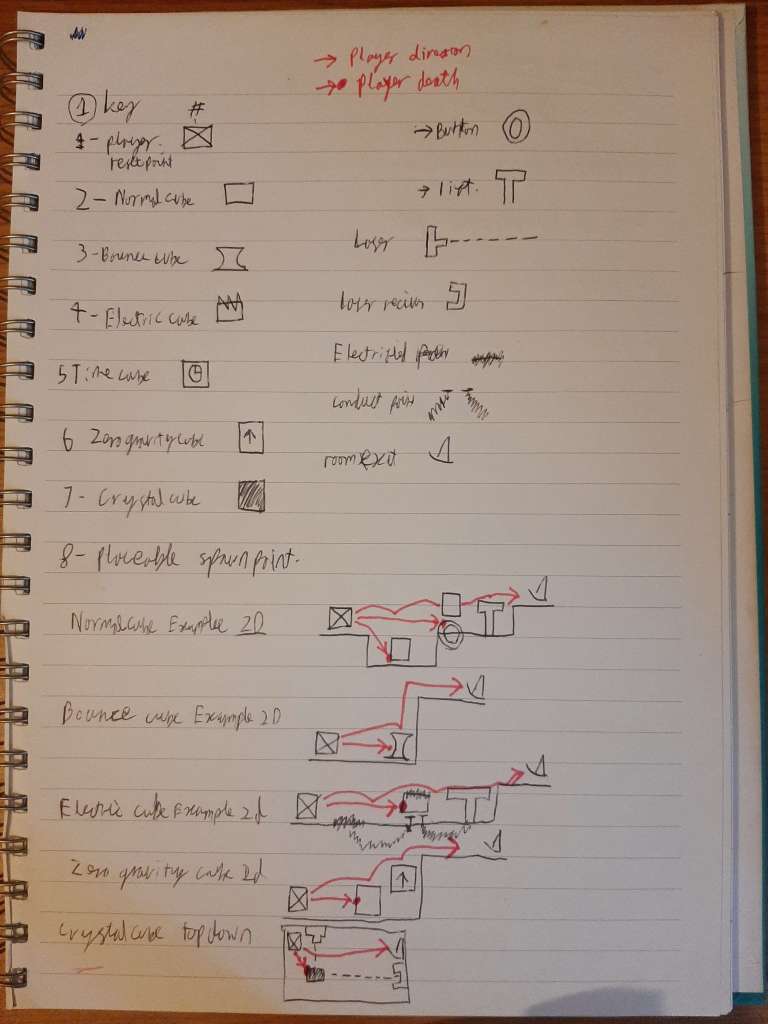 → Player direction
→ Player death
① key #
1 - player
reset point
→ Button
2 - Normal cube
→ lift.
3 - Bounce cube
Laser
4 - Electric cube
Laser reciever
5 Time cube
Electrified
conduct point
6 Zero gravity cube
room exit
7 - Crystal cube
8 - Placeable spawn point.
Normal cube Example 2D
Bounce cube Example 2D
Electric cube Example 2d
Zero gravity cube 2d
Crystal cube top down